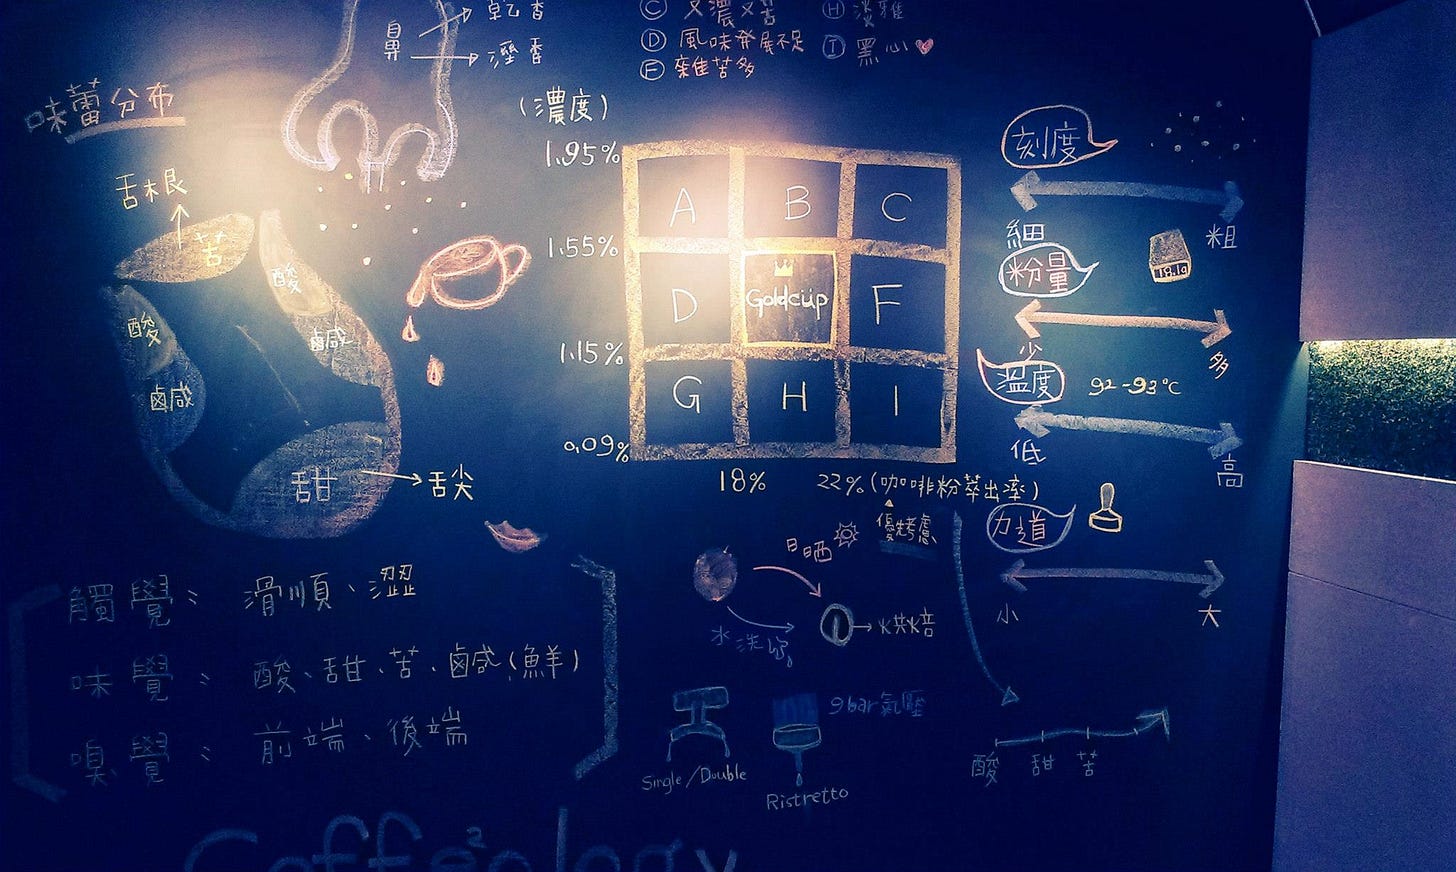 鼻
乾香
溼香
Ⓒ 又濃又苦
Ⓓ 風味發展不足
Ⓕ 雜苦多
Ⓗ 淡雅
Ⓘ 黑心
味蕾分布
舌根
苦
酸
鹹
酸
鹹
甜
舌尖
(濃度)
1.95%
1.55%
1.15%
0.09%
A B C
D Goldcup F
G H I
18% 22% (咖啡粉萃出率)
優先考慮
刻度
細 粗
粉量
18.1g
少 多
溫度 92-93℃
低 高
力道
小 大
日晒
水洗
烘焙
9bar氣壓
Single/Double
Ristretto
酸 甜 苦
觸覺: 滑順、澀
味覺: 酸、甜、苦、鹵咸(鮮)
嗅覺: 前端、後端